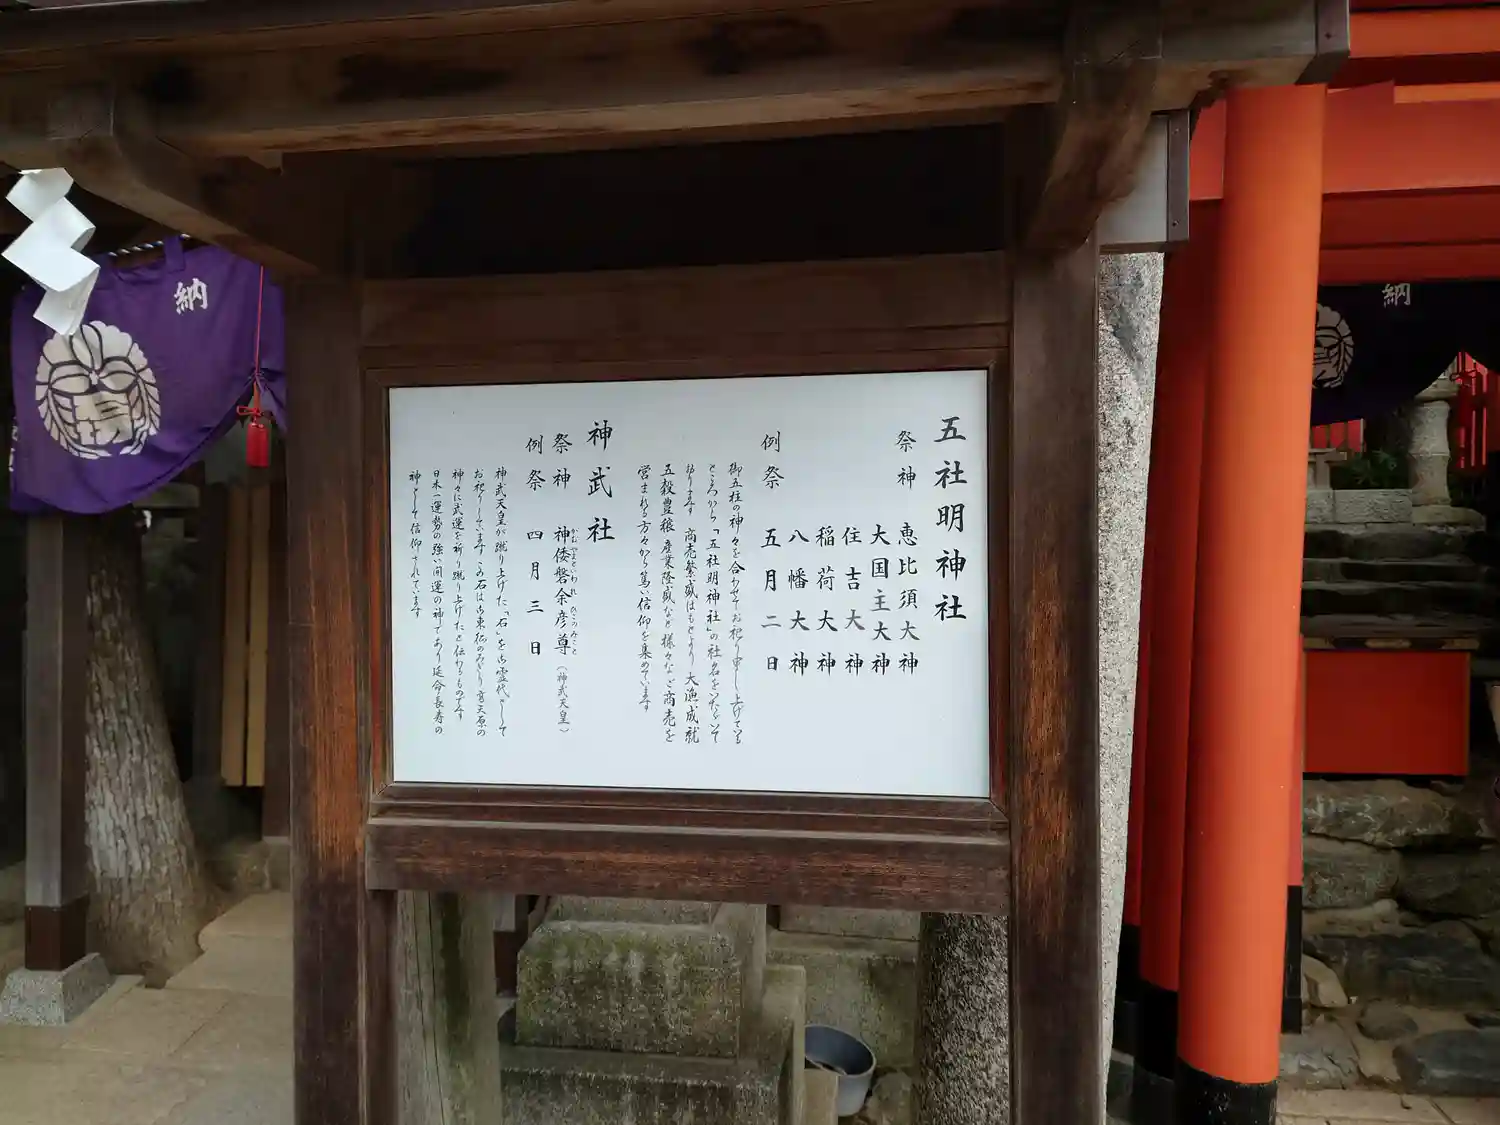 五社明神社
祭神　恵比須大神
大国主大神
住吉大神
稲荷大神
八幡大神
例祭　五月二日
御五柱の神々を合わせてお祀り申し上げている
ところから「五社明神社」の社名をいただいて
おります　商売繁盛はもとより　大漁成就
五穀豊穣　産業隆盛など様々なご商売を
営まれる方々から篤い信仰を集めています
神武社
祭神　神倭磐余彦尊（神武天皇）
かむやまといわれ　ひこのみこと
例祭　四月三日
神武天皇が蹴り上げた「石」を御霊代として
お祀りしています　この石は御東征のみぎり　宮天原の
神々に武運を祈り蹴り上げたと伝わるものです
日本一運勢の強い開運の神であり延命長寿の
神として信仰されています
納
納